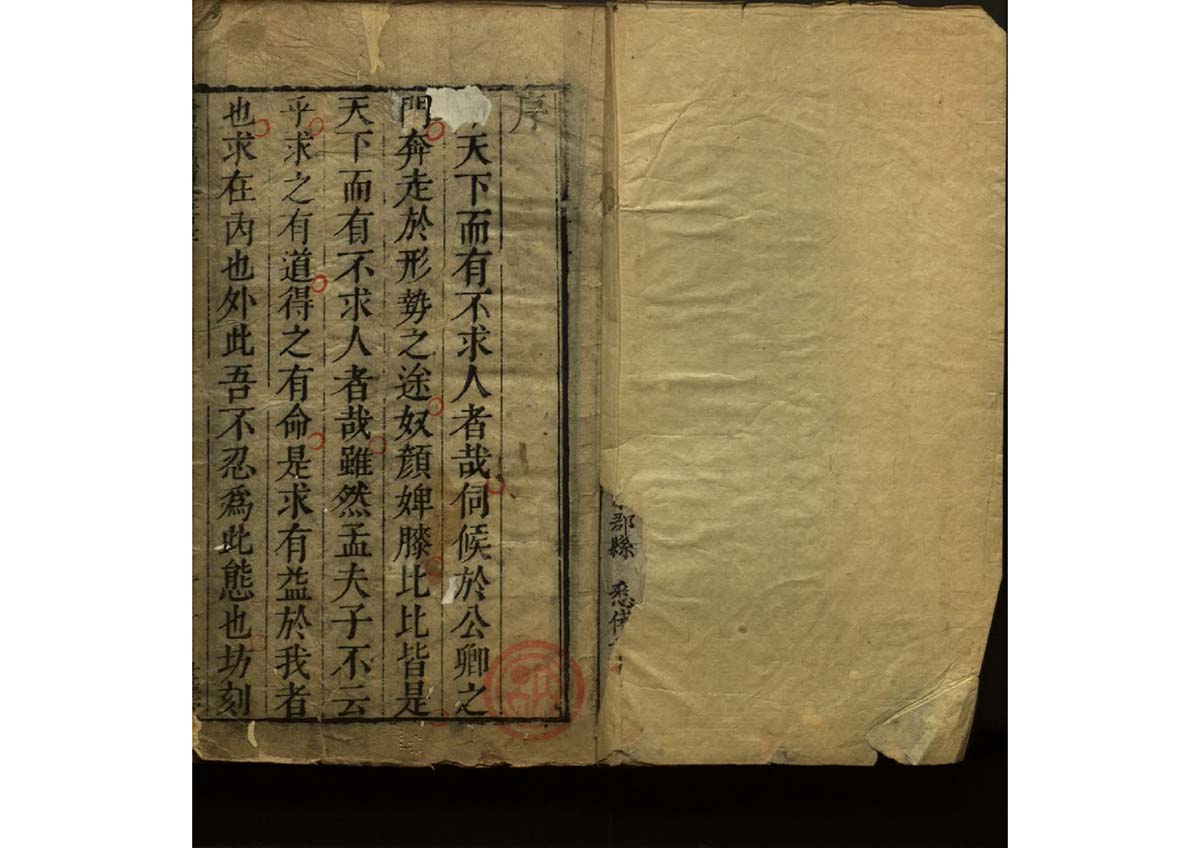 郡縣 悉
序
天下而有不求人者哉伺候於公卿之
門奔走於形勢之途奴顏婢膝比比皆是
天下而有不求人者哉雖然孟夫子不云
乎求之有道得之有命是求有益於我者
也求在內也外此吾不忍爲此態也坊刻